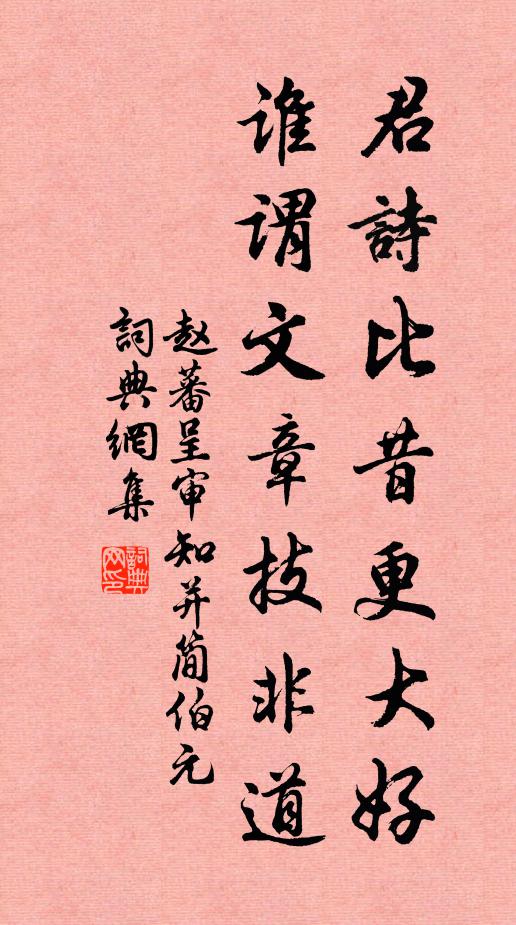 君詩比昔更大好
谁謂文章技非道
赵蕃呈审知并简伯元
詞典網集
詞典网印